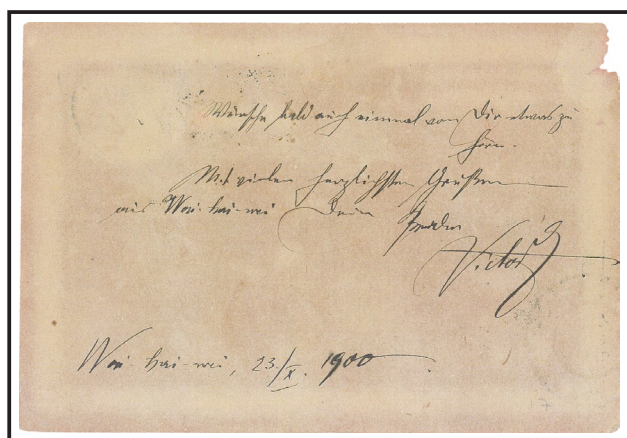 Wünsche bald auch einmal von Dir etwas zu
hören.
Mit vielen herzlichsten Grüßen
aus Wei-hai-wei Dein
Victor
Wei-hai-wei, 23/X. 1900